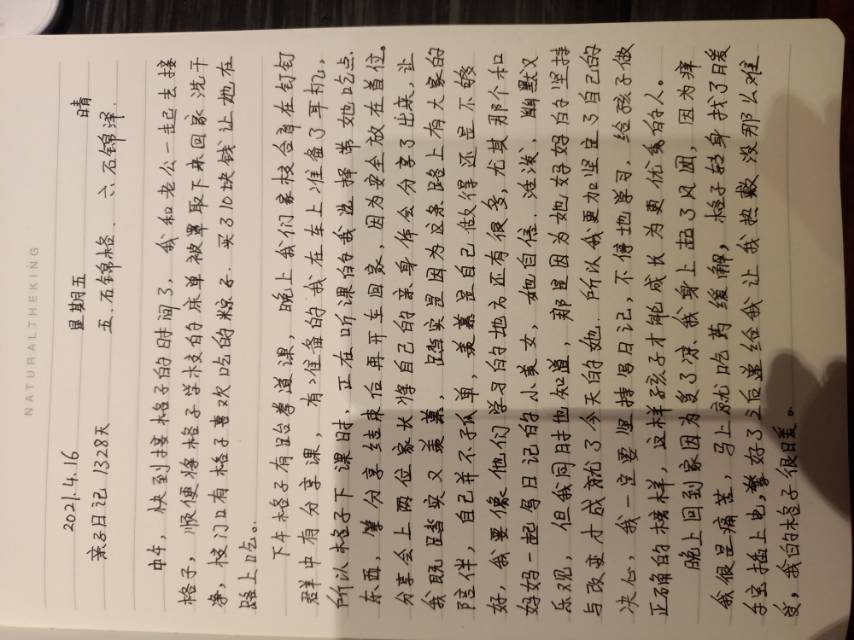 NATURALTHEKING
2021.4.16 星期五 晴
亲子日记 1328天 五.石锦格. 六石锦泽.
中午,快到接格子的时间了,我和老公一起去接
格子,顺便将格子学校的床单被罩取下来回家洗干
净,校门口有格子喜欢吃的粽子.买了10块钱让她在
路上吃。
下午格子有跆拳道课,晚上我们家校合育在钉钉
群中有分享课,有准备的我在车上准备了耳机,
所以格子下课时,正在听课的我选择带她吃点
东西,等分享结束后再开车回家,因为安全放在首位。
分享会上两位家长将自己的亲身体会分享了出来,让
我既踏实又羡慕,踏实是因为这条路上有大家的
陪伴,自己并不孤单,羡慕是自己做得还是不够
好,我要像他们学习的地方还有很多,尤其那个和
妈妈一起写日记的小美女,她自信、活泼、幽默又
乐观,但我同时也知道,那是因为她妈妈的坚持
与改变才成就了今天的她.所以我更加坚定了自己的
决心,我一定要坚持写日记,不停地学习.给孩子做
正确的榜样,这样孩子才能成长为更优秀的人。
晚上回到家因为受了凉、我身上起了风团,因为痒
我很是痛苦,马上就吃药缓解,格子转身找了暖
手宝插上电,等好了之后递给我让我热敷没那么难
受,我的格子很暖。